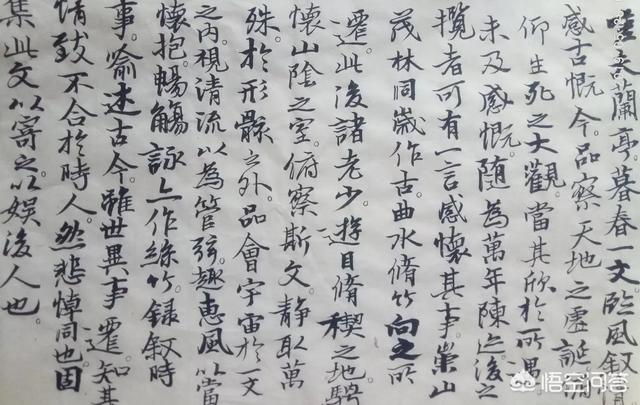 蘭亭暮春一文。臨風敘情
感古慨今。品察天地之虛誕。清
仰生死之大觀。當其欣於所遇。
未及感慨。隨為萬年陳迹。後之
攬者可有一言感懷其事。崇山
茂林同歲作古。曲水脩竹向之所
遷。此後諸老少。遊目脩稧之地。騁
懷山陰之室。俯察斯文。靜取萬
殊於形骸之外。品會宇宙於一文
之內。視清流以為管弦。趣惠風以當
懷抱。暢觴詠上作絲竹。錄敘時
事。喻述古今。雖世異事遷。知其
情致不合於時人。然悲悼同也。固
集此文以寄之。以娛後人也。
悟空问答